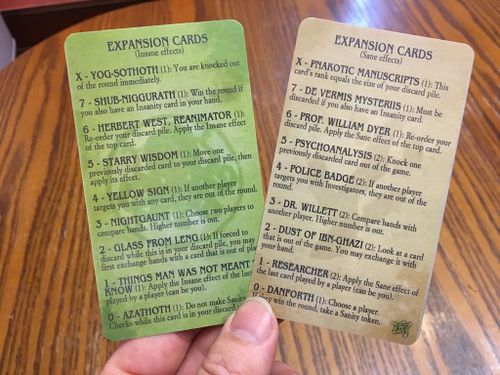 EXPANSION CARDS
(Insane effects)
X - YOG-SOTHOTH (1): You are knocked out
of the round immediately.
7 - SHUB-NIGGURATH (1): Win the round if
you also have an Insanity card in your hand.
6 - HERBERT WEST, REANIMATOR (1):
Re-order your discard pile. Apply the Insane effect
of the top card.
5 - STARRY WISDOM (1): Move one
previously discarded card to your discard pile, then
apply its effect.
4 - YELLOW SIGN (1): If another player
targets you with any card, they are out of the round.
3 - NIGHTGAUNT (1): Choose two players to
compare hands. Higher number is out.
2 - GLASS FROM LENG (1): If forced to
discard while this is in your discard pile, you may
first exchange hands with a card that is out of
1 - THINGS MAN WAS NOT MEANT
KNOW (1): Apply the Insane effect of the last
played by a player (can be you).
0 - AZATHOTH (1): Do not make Sanity
Checks while this card is in your discard
EXPANSION CARDS
(Sane effects)
X - PNAKOTIC MANUSCRIPTS (1): This
card's rank equals the size of your discard pile.
7 - DE VERMIS MYSTERIIS (1): Must be
discarded if you also have an Insanity card.
6 - PROF. WILLIAM DYER (1): Re-order your
discard pile. Apply the Sane effect of the top card.
5 - PSYCHOANALYSIS (2): Knock one
previously discarded card out of the game.
4 - POLICE BADGE (2): If another player
targets you with Investigators, they are out of the
round.
3 - DR. WILLETT (2): Compare hands with
another player. Higher number is out.
2 - DUST OF IBN-GHAZI (2): Look at a card
that is out of the game. You may exchange it with
your hand.
1 - RESEARCHER (2): Apply the Sane effect of
the last card played by a player (can be you).
0 - DANFORTH (1): Choose a player.
If they win the round, take a Sanity token.